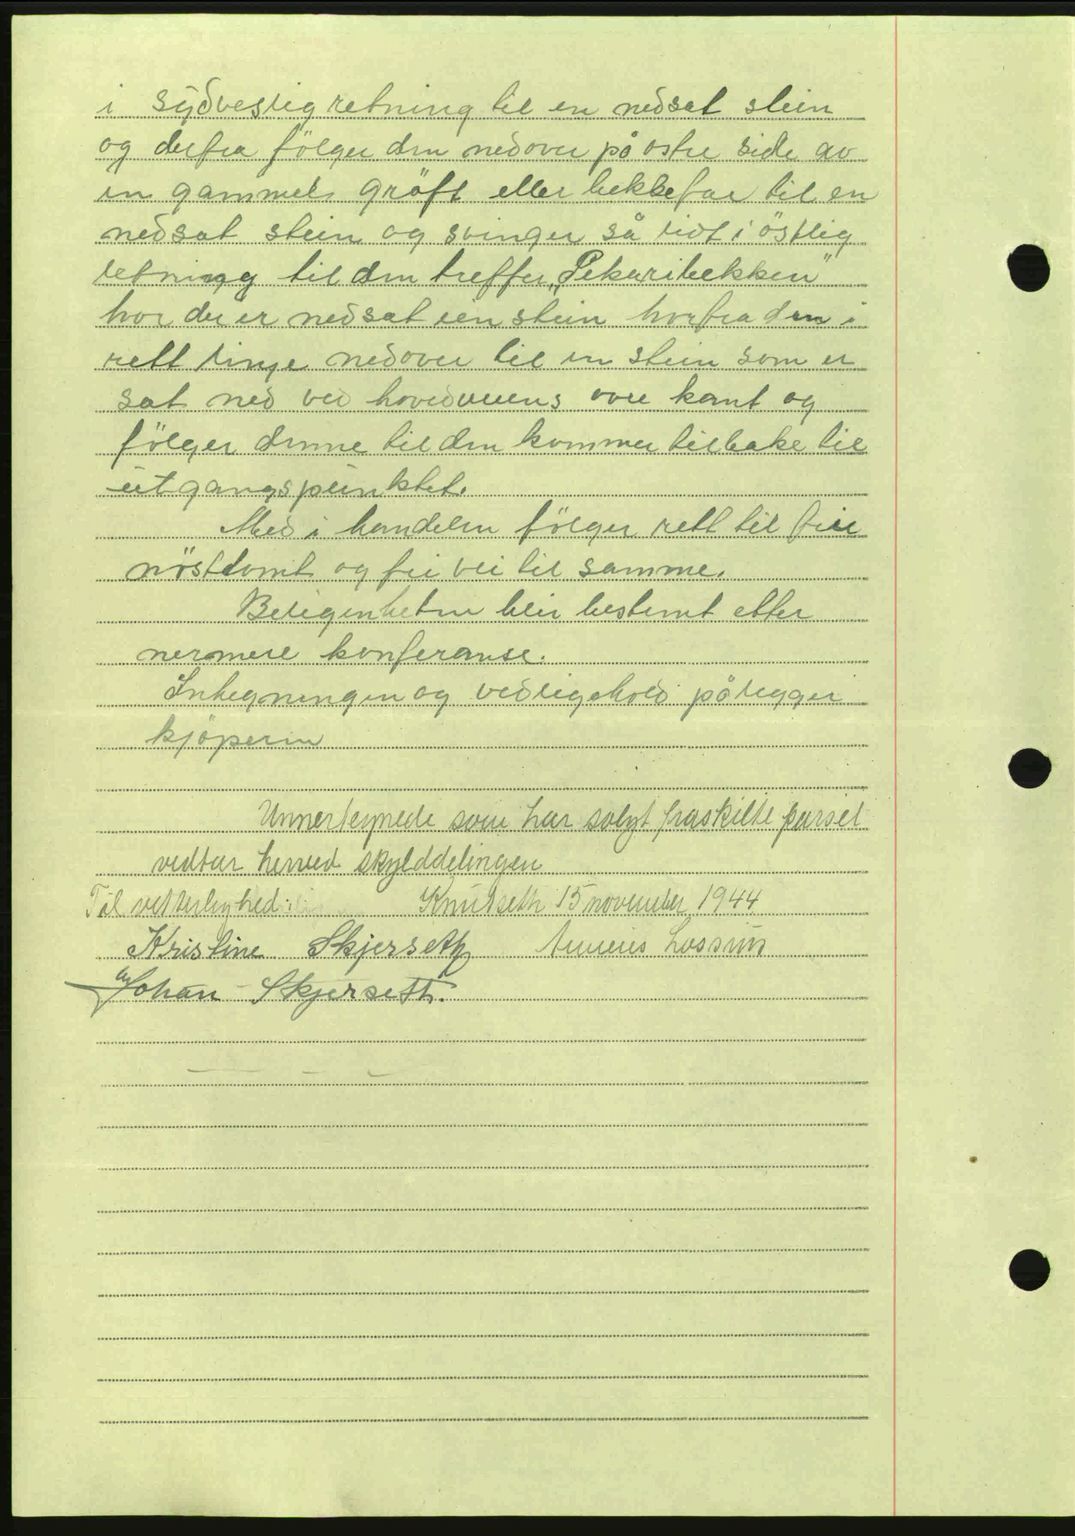 i sydvestlig retning til en nedsat stein
og derfra fölger den nedover på östre side av
en gammel gröft eller bekkefar til en
nedsat stein og svinger så lidt i östlig
retning til den treffer „Pekaribekken”
hvor der er nedsat en stein hvorfra den i
rett linje nedover til en stein som er
sat ned ved hovedveiens övre kant og
fölger denne til den kommer tilbake til
utgangspunktet.
Med i handelen fölger rett til frie
nösttomt og fri vei til samme.
Beligenheten blir bestemt etter
nermere konferanse.
Inhegningen og vedligehold pålegges
kjöperen
Unnertegnede som har solgt fraskilte parsel
vedtar herved skylddelingen
Til vitterlighed: Knutseth 15 november 1944
Kristine Skjerseth
Johan Skjerseth.